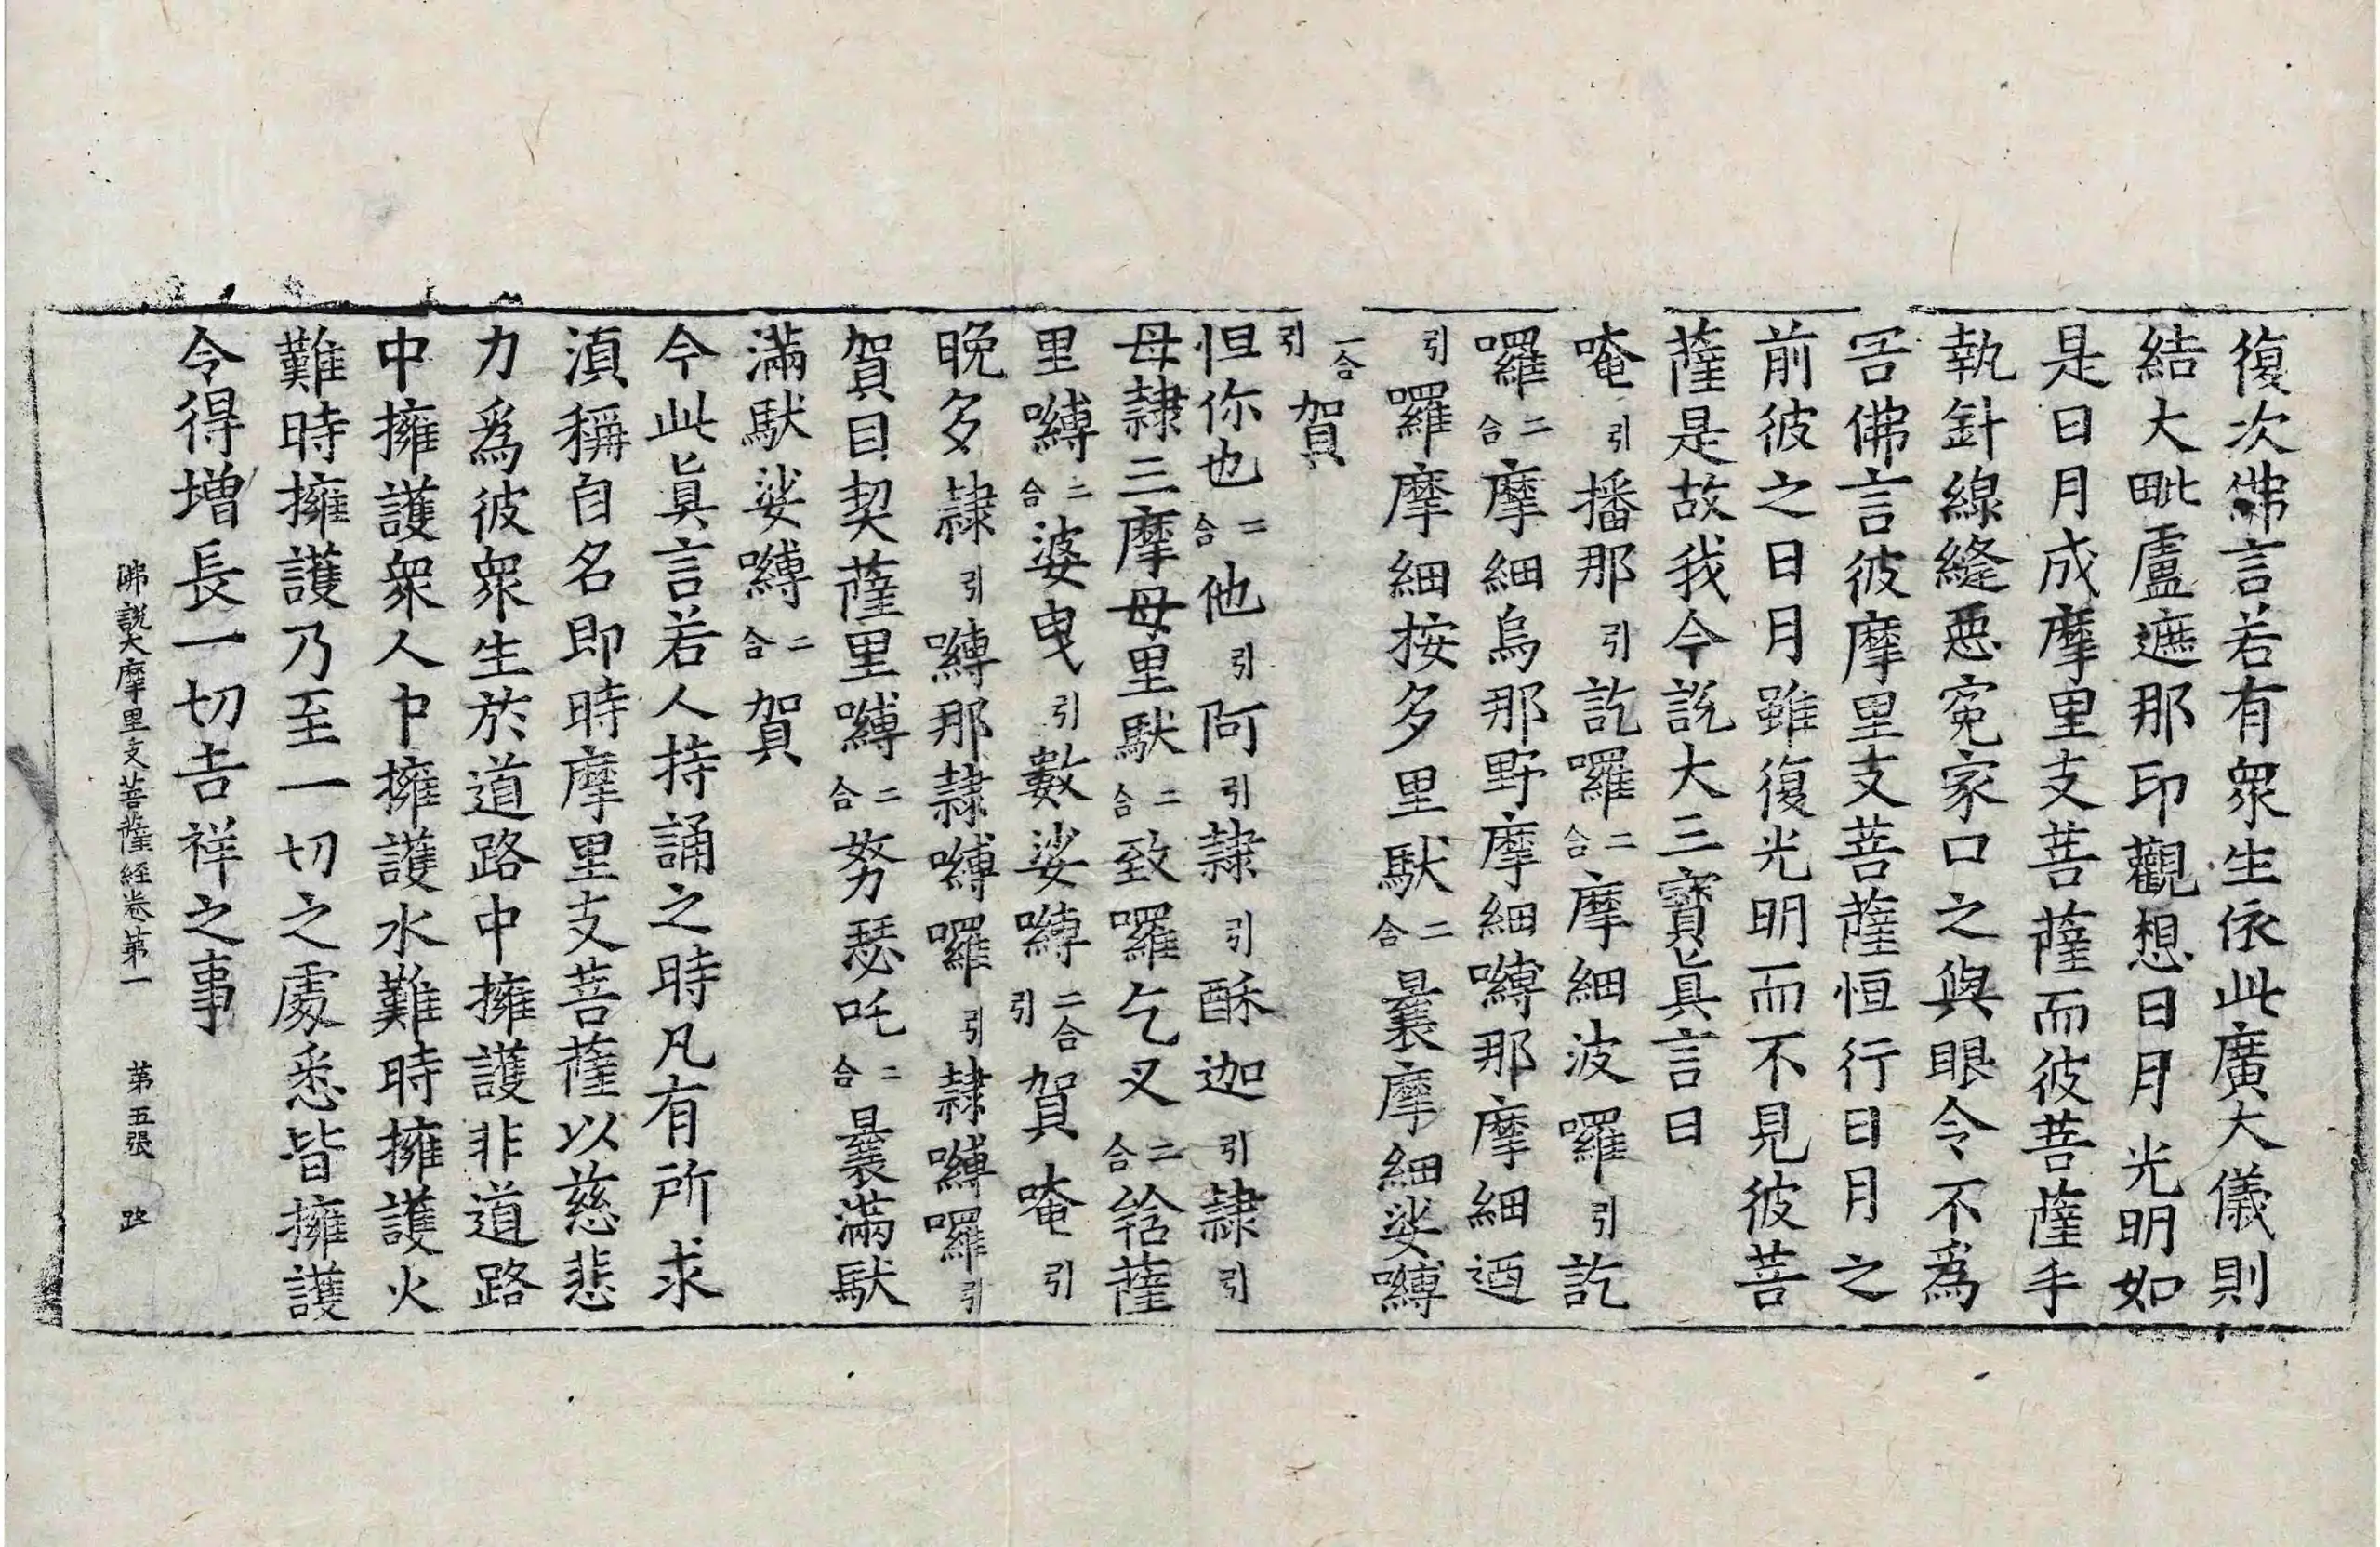 復次佛言若有衆生依此廣大儀則
結大毗盧遮那印觀想日月光明如
是日月成摩里支菩薩而彼菩薩手
執針線縫惡寃家口之與眼令不爲
害佛言彼摩里支菩薩恒行日月之
前彼之日月雖復光明而不見彼菩
薩是故我今說大三寶眞言曰
唵引播那引訖囉二合摩細波囉引訖
囉二合摩細烏那野摩細嚩那摩細迺
引囉摩細按多里馱二合曩摩細娑嚩
二合引賀
怛你也二合他引阿引隷引酥迦引隷引
母隷三摩母里馱二合致囉乞叉二合𤚥薩
里嚩二合婆曳引數娑嚩二合引賀唵引
晩多隷引嚩那隷嚩囉引隷嚩囉引
賀目契薩里嚩二合努瑟吒二合曩滿馱
滿馱娑嚩二合賀
今此眞言若人持誦之時凡有所求
湏稱自名即時摩里支菩薩以慈悲
力爲彼衆生於道路中擁護非道路
中擁護衆人中擁護水難時擁護火
難時擁護乃至一切之處悉皆擁護
令得增長一切吉祥之事
佛說大摩里支菩薩經卷第一 第五張 路